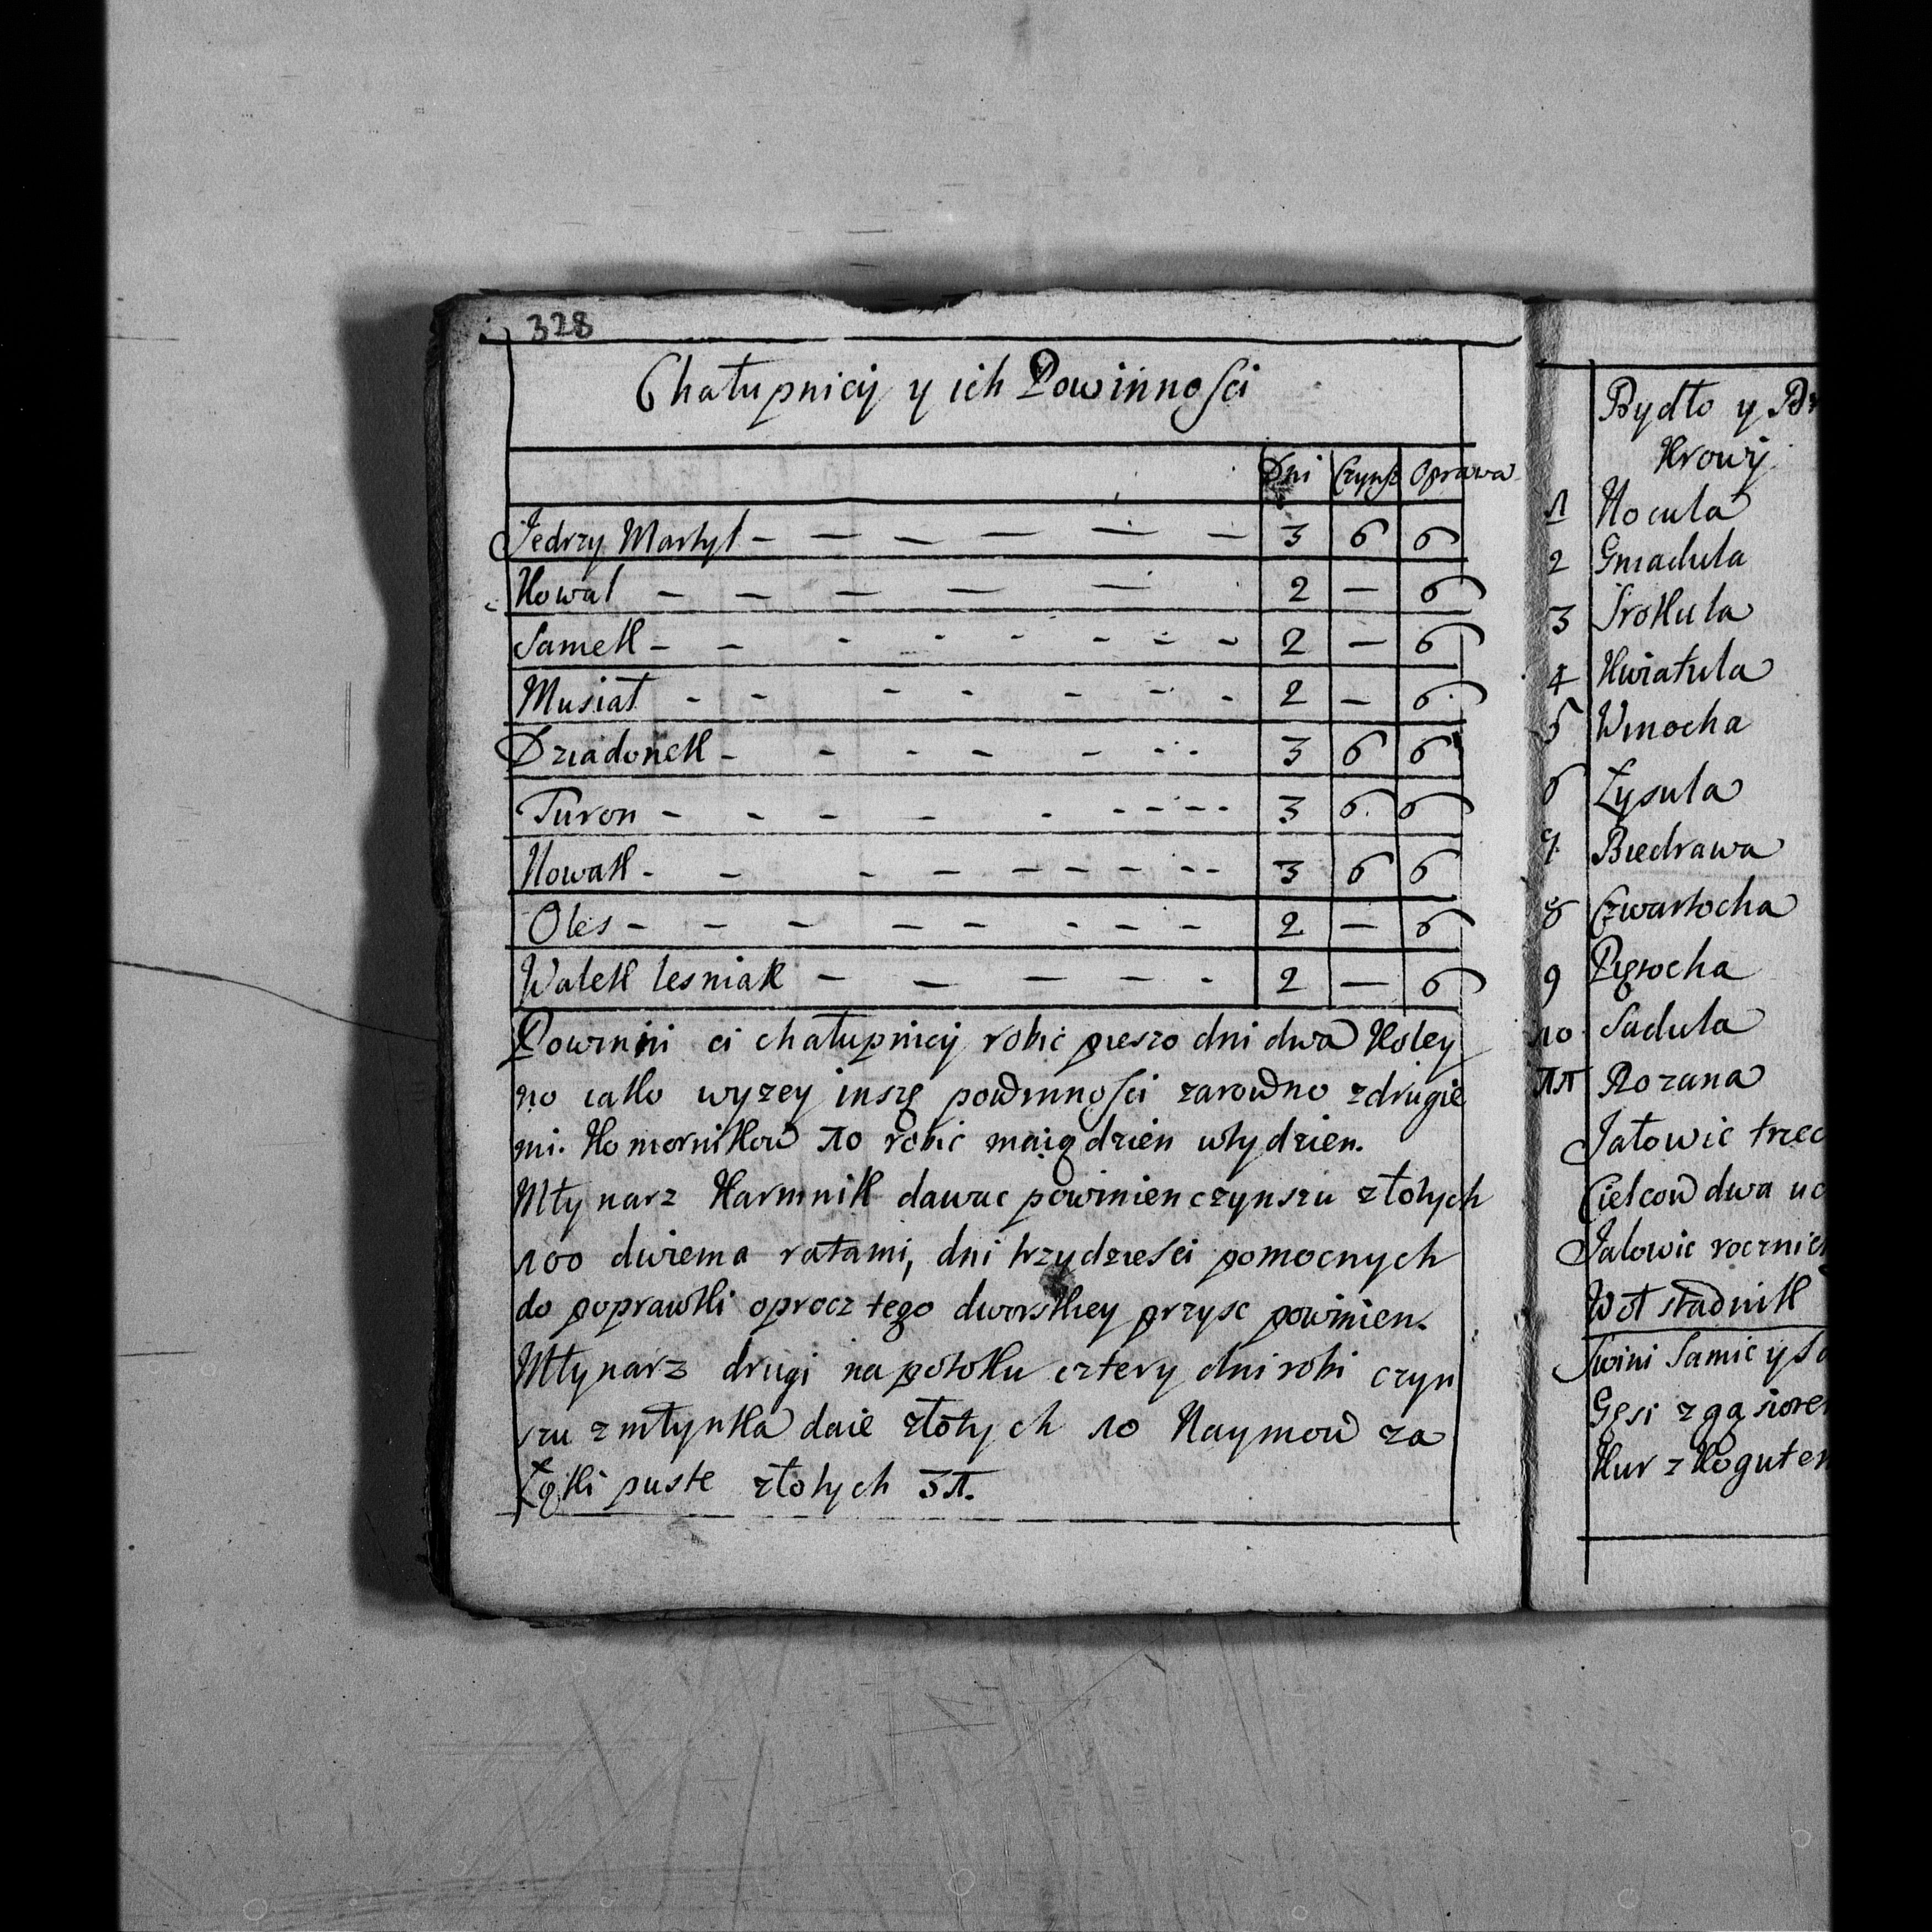 328
Chałupnicy y ich Powinnosci
Dni Czynsz Oprawa
Jedrzy Martyl - - - - - - 3 6 6
Kowal - - - - - 2 - 6
Samek - - - - - - - - - 2 - 6
Musiał - - - - - - - 2 - 6
Dziadonek - - - - - - - 3 6 6
Turon - - - - - - - - - - 3 6 6
Nowak - - - - - - - - - - 3 6 6
Oles - - - - - - - - - 2 - 6
Walek lesniak - - - - - - 2 - 6
Powinni ci chałupnicy robic pieszo dni dwa Koley
no iako wyzey insze powinnosci zarowno zdrugie
mi. Komornikow 10 robic maią dzien wtydzien.
Młynarz Karmnik dawac powinien czynszu złotych
100 dwiema ratami, dni trzydziesci pomocnych
do poprawki oprocz tego dworskiey przysc powinien.
Młynarz drugi na potoku cztery dni robi czyn
szu zmłynka daie złotych 10 Naymow za
Łąki puste złotych 31.
Bydło y
Krowy
1 Kocula
2 Gniadula
3 Srokula
4 Kwiatula
5 Winocha
6 Łysula
7 Biedrawa
8 Czwartocha
9 Pięrocha
10 Sadula
11 Rozana
Jałowic trzec
Cielcow dwa uc
Jalowic rocznic
Woł stadnik
Swini Samic y So
Gęsi zgąsiore
Kur z Koguten